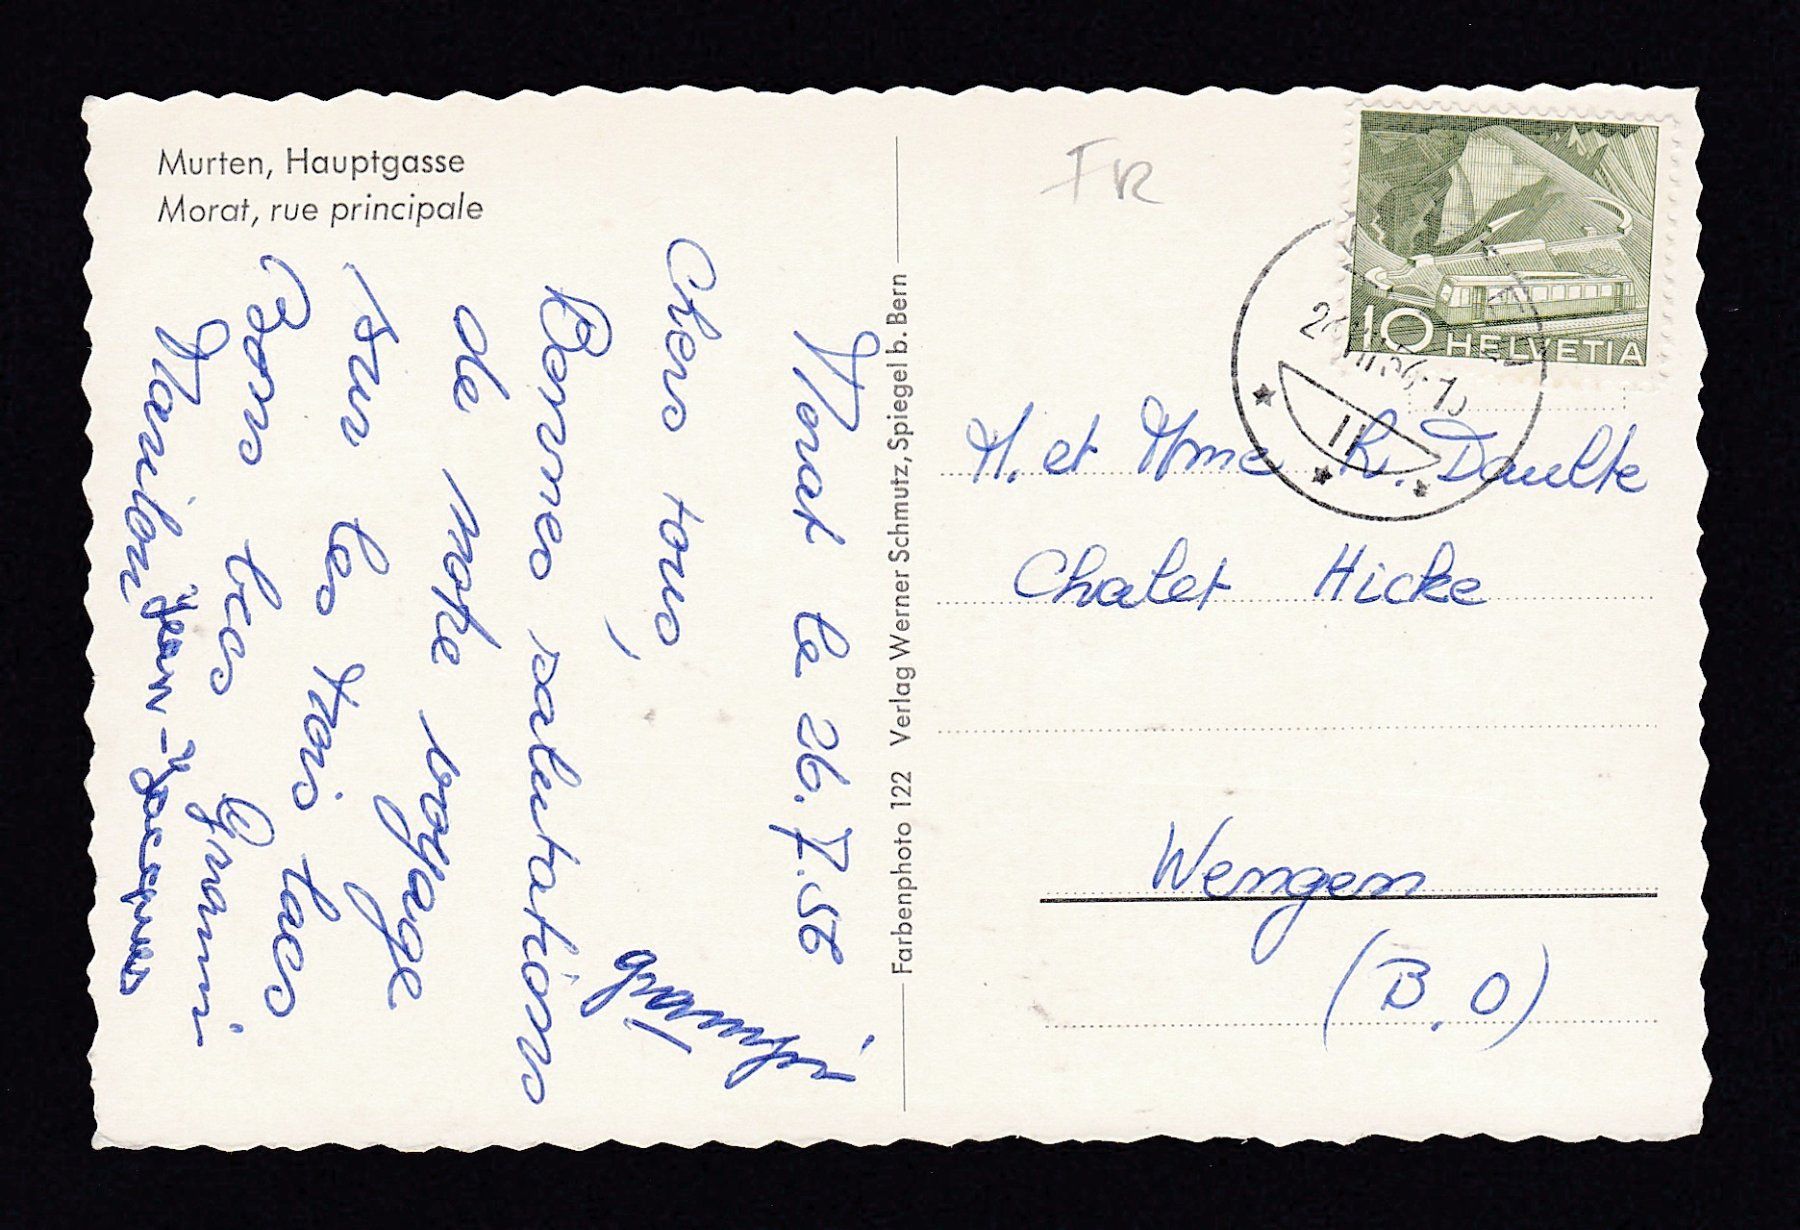 Murten, Hauptgasse
Morat, rue principale
Morat le 26.7.56
Chers tous,
Bonnes salutations
de notre voyage
sur les trois lacs
Bons becs Grami
Jean-Jacques
Farbenphoto 122 Verlag Werner Schmutz, Spiegel b. Bern
FR
HELVETIA
10
M. et Mme R. Daulte
Chalet Hicke
Wengen
(B.O)